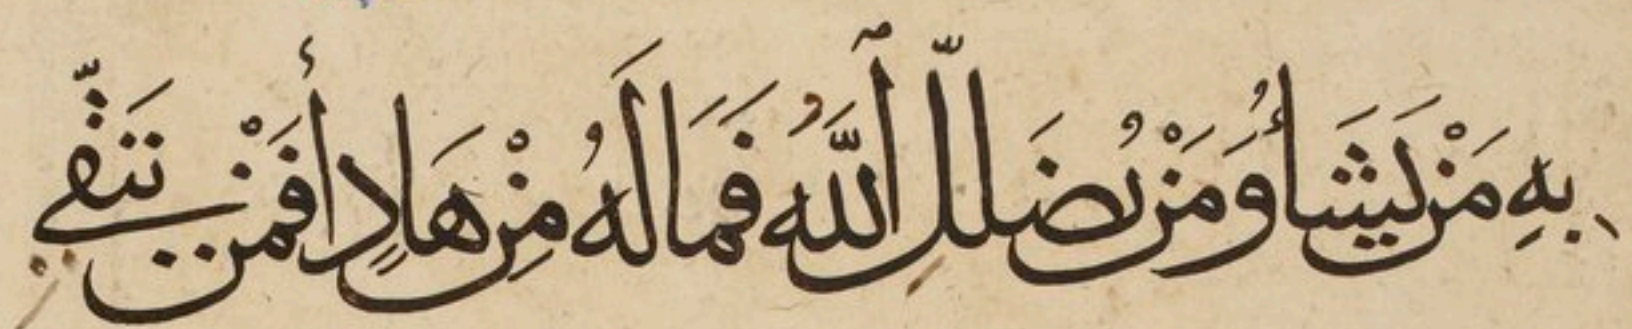 بِهِ مَنْ يَشَاءُ وَمَنْ يُضْلِلِ ٱللَّهُ فَمَا لَهُ مِنْ هَادٍ أَفَمَنْ يَتَّقِي